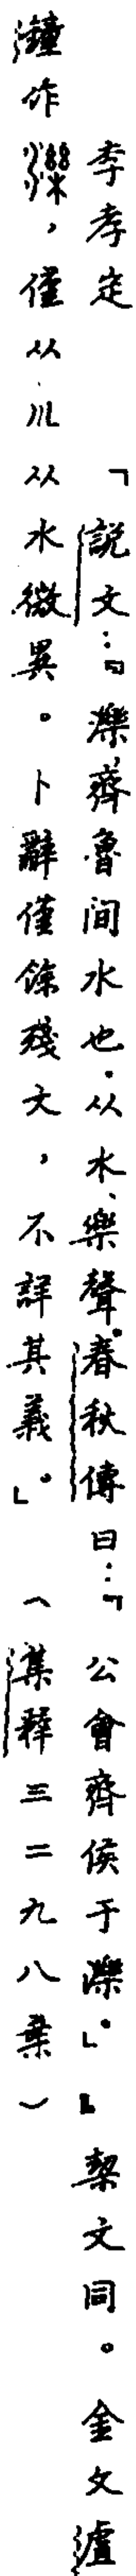 李孝定 「說文：『濼齊魯間水也。从水、樂聲。春秋傳曰：『公會齊侯于濼。』』契文同。金文瀘
鐘作，僅从川从水微異。卜辭僅餘殘文，不詳其義。」 （集釋三二九八葉）